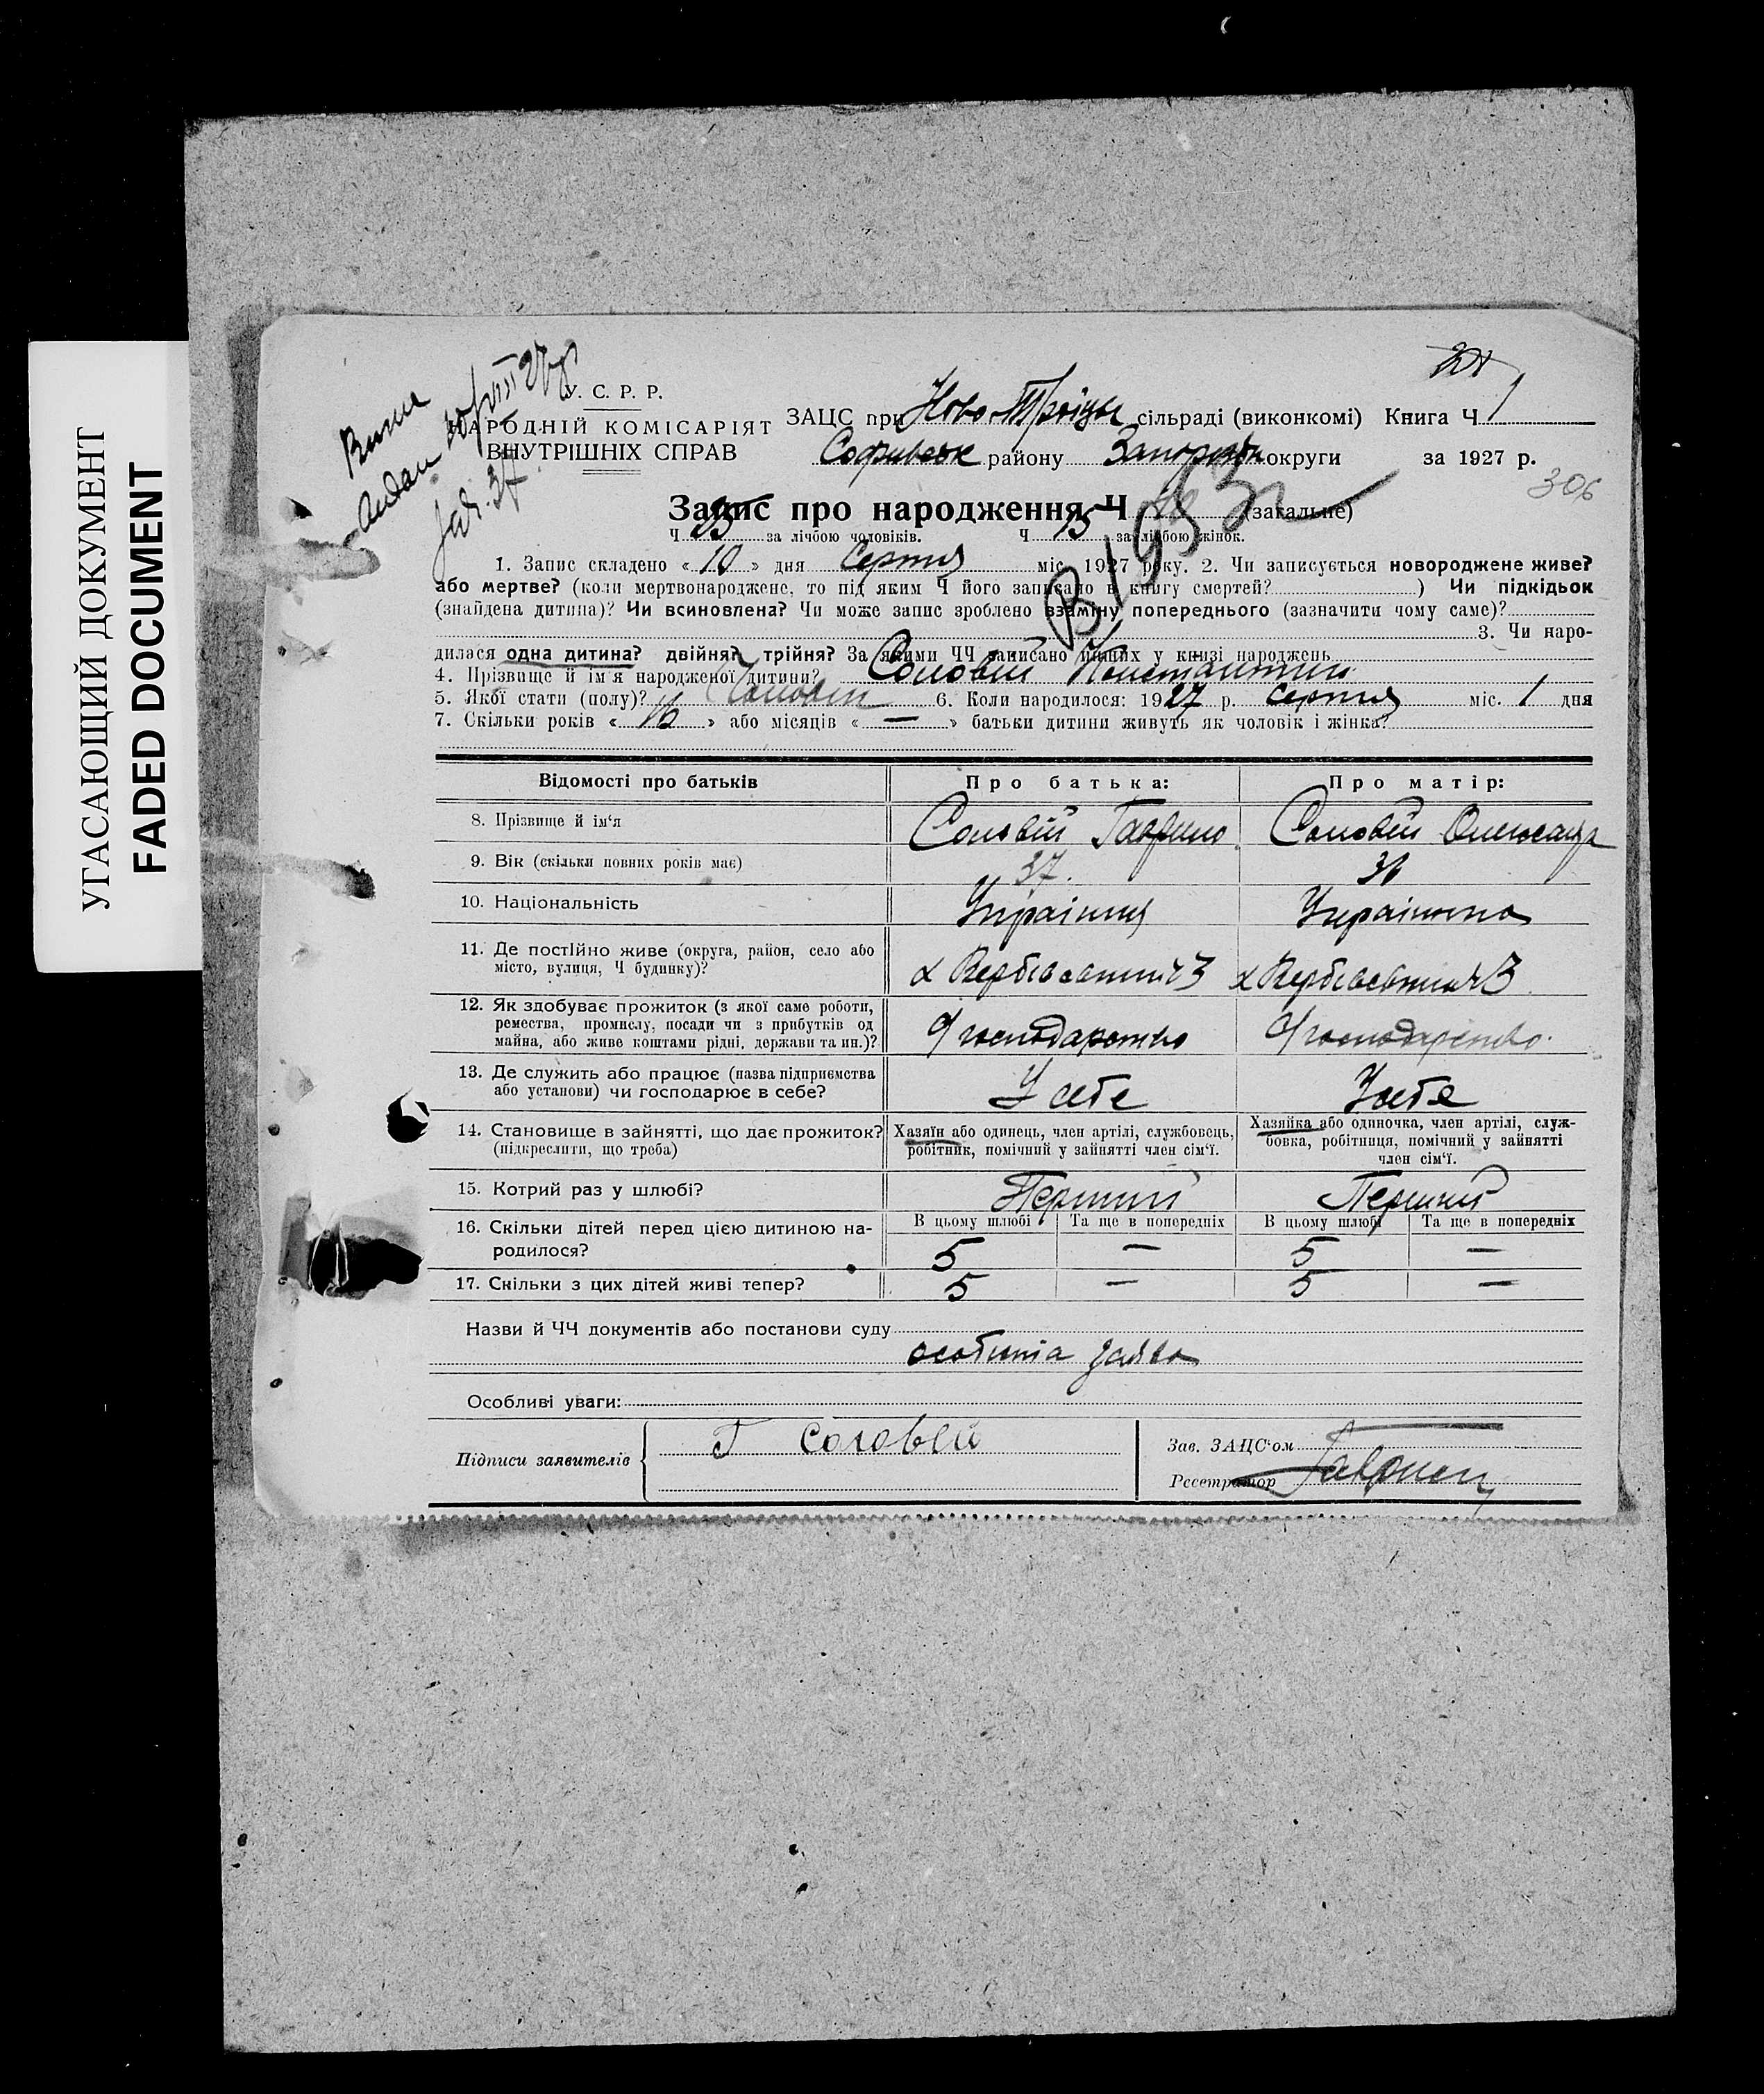 УГАСАЮЩИЙ ДОКУМЕНТ
FADED DOCUMENT
У. С. Р. Р.
НАРОДНІЙ КОМІСАРІЯТ
ВНУТРІШНІХ СПРАВ
ЗАЦС при Ново-Троіцьк сільраді (виконкомі) Книга Ч 1
Софиевськ району Запорізьк округи за 1927 р.
306
Запис про народження Ч (загальне)
Ч за лічбою чоловіків. Ч 15 за лічбою жінок.
1. Запис складено « 10 » дня Серпня міс. 1927 року. 2. Чи записується новороджене живе?
або мертве? (коли мертвонароджене, то під яким Ч його записано в книгу смертей? ) Чи підкідьок
(знайдена дитина)? Чи всиновлена? Чи може запис зроблено взаміну попереднього (зазначити чому саме)?
3. Чи наро-
дилася одна дитина? двійня? трійня? За якими ЧЧ записано инших у книзі народжень
4. Прізвище й ім'я народженої дитини? Соловій Константин
5. Якої стати (полу)? Чоловічі 6. Коли народилося: 1927 р. Серпня міс. 1 дня
7. Скільки років « 16 » або місяців « — » батьки дитини живуть як чоловік і жінка?
Відомості про батьків Про батька: Про матір:
8. Прізвище й ім'я Соловій Гаврило Соловій Олександр
9. Вік (скільки повних років має) 37. 36
10. Національність Українця Українка
11. Де постійно живе (округа, район, село або
місто, вулиця, Ч будинку)?
12. Як здобуває прожиток (з якої саме роботи,
ремества, промислу, посади чи з прибутків од
майна, або живе коштами рідні, держави та ин.)? господарство господарство.
13. Де служить або працює (назва підприємства
або установи) чи господарює в себе? У себе У себе
14. Становище в зайнятті, що дає прожиток?
(підкреслити, що треба)
Хазяїн або одинець, член артілі, службовець,
робітник, помічний у зайнятті член сім'ї.
Хазяйка або одиночка, член артілі, служ-
бовка, робітниця, помічний у зайнятті
член сім'ї.
15. Котрий раз у шлюбі? Перший Перший
16. Скільки дітей перед цією дитиною на-
родилося?
В цьому шлюбі Та ще в попередніх В цьому шлюбі Та ще в попередніх
5 — 5 —
17. Скільки з цих дітей живі тепер? 5 — 5 —
Назви й ЧЧ документів або постанови суду
особиста заява
Особливі уваги:
Підписи заявителів Г Соловей
Зав. ЗАЦС'ом
Реєстратор